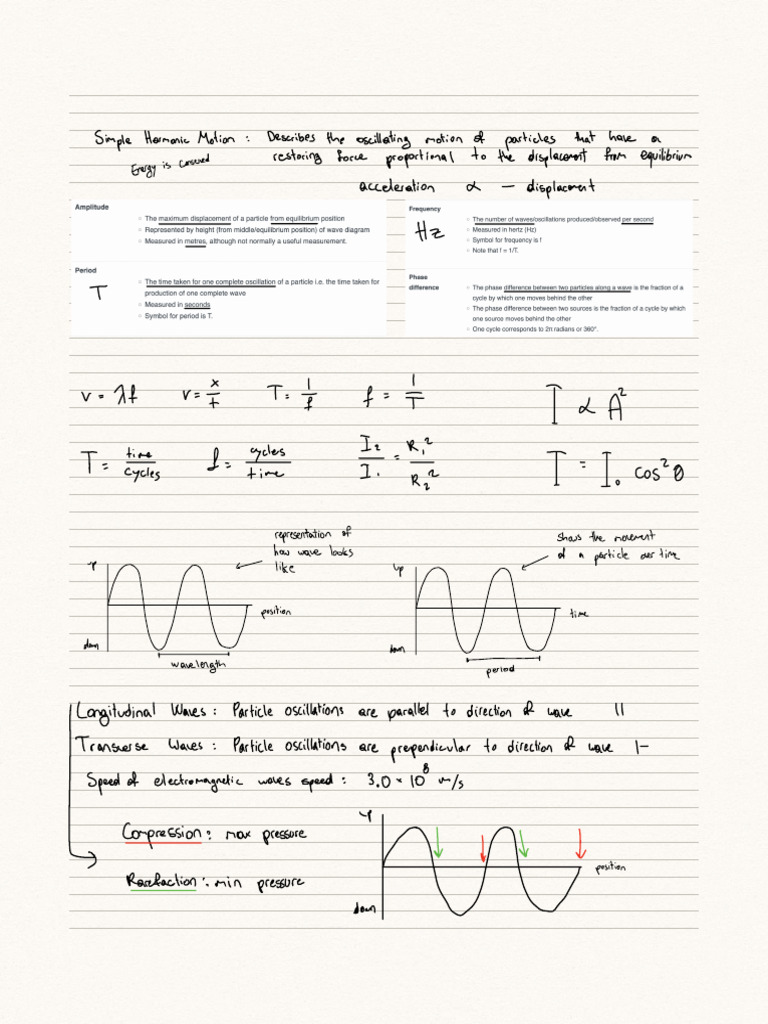 Simple Harmonic Motion : Describes the oscillating motion of particles that have a
Energy is conserved
restoring force proportional to the displacement from equilibrium
acceleration ∝ – displacement
Amplitude
The maximum displacement of a particle from equilibrium position
Represented by height (from middle/equilibrium position) of wave diagram
Measured in metres, although not normally a useful measurement.
Period
T
The time taken for one complete oscillation of a particle i.e. the time taken for
production of one complete wave
Measured in seconds
Symbol for period is T.
Frequency
Hz
The number of waves/oscillations produced/observed per second
Measured in hertz (Hz)
Symbol for frequency is f
Note that f = 1/T.
Phase
difference
The phase difference between two particles along a wave is the fraction of a
cycle by which one moves behind the other
The phase difference between two sources is the fraction of a cycle by which
one source moves behind the other
One cycle corresponds to 2π radians or 360°.
v = λf v = x/t T = 1/f f = 1/T I ∝ A²
T = time/cycles f = cycles/time I₂/I₁ = R₁²/R₂² I = I₀ cos²θ
representation of
how wave looks
like
up
position
down
wavelength
shows the movement
of a particle over time
up
time
down
period
Longitudinal Waves : Particle oscillations are parallel to direction of wave ||
Transverse Waves : Particle oscillations are prependicular to direction of wave |–
Speed of electromagnetic waves speed : 3.0 × 10⁸ m/s
Compression : max pressure
Rarefaction : min pressure
up
position
down